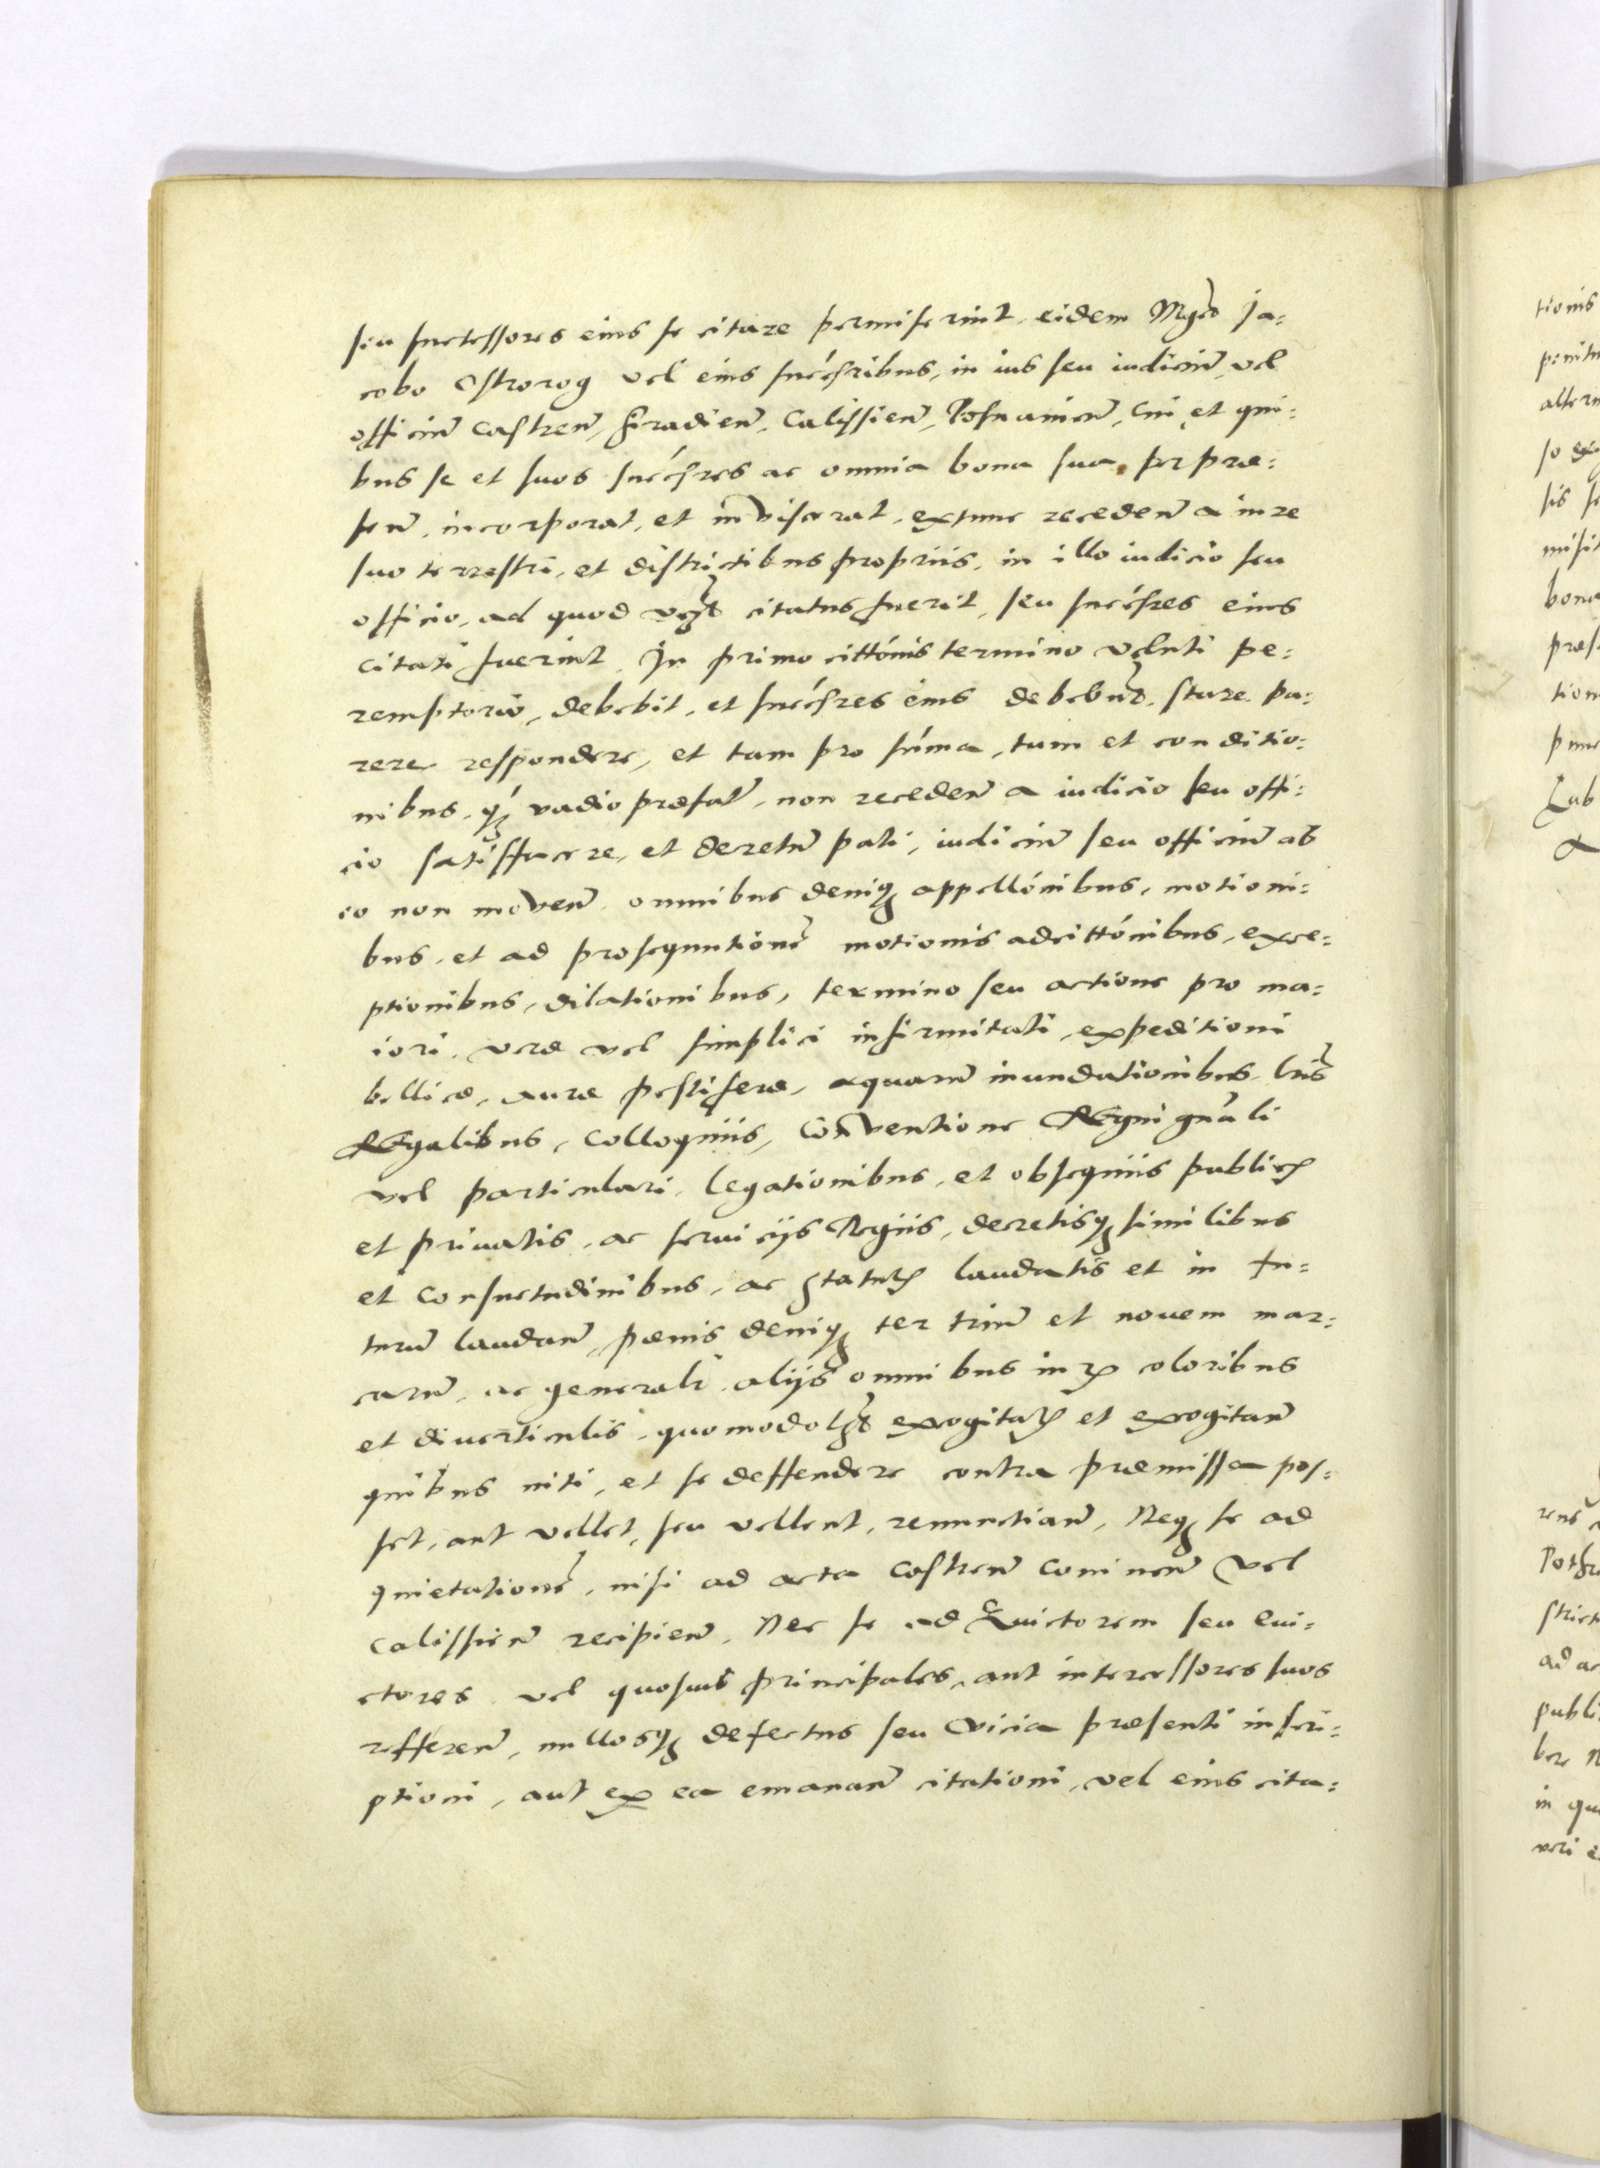 seu successores eius se citare permiserint, eidem Mgco Ja=
cobo Ostrorog vel eius succsribus, in ius seu iudiciu vel
officiu Castren, Siradien, Calissien, Posnanien, Cui et qui=
bus se et suos succsres ac omnia bona sua, per præ=
sen, incorporat, et inviscerat, extunc receden a iure
suo terrestri, et districtibus propriis, in illo iudicio seu
officio, ad quod citatus fuerit, seu succsres eius
citati fuerint. In primo cittonis termino veluti pe=
remptorio, debebit, et succsres eius debebut, stare pa=
rere respondere, et tam pro suma, tum et conditio=
nibus, q vadio præfat, non receden a iudicio seu offi=
cio satisffacere, et decretu pati, iudiciu seu officiu ab
eo non moven, omnibus deniq appellonibus, motioni=
bus, et ad prosequutione motionis adcittonibus, exce=
ptionibus, dilationibus, termino seu actione pro ma=
iori, veræ vel simplici infirmitati, expeditioni
bellicæ, auræ pestiferæ, aquaru inundationibus, lris
REgalibus, Colloquiis, Conventione REgni gnali
vel particulari, legationibus, et obsequiis publicis
et privatis, ac seruicijs Regiis, decretisq similibus
et Consuetudinibus, ac statutis laudatis et in fu=
turu laudan, pænis deniq ter triu et novem mar=
caru, ac generali, alijs omnibus iuris coloribus
et diverticulis, quomodolt excogitatis et excogitan
quibus niti, et se deffendere contra præmissa pos=
set, aut vellet, seu vellent, renunctian, Neq se ad
quietatione, nisi ad acta Castren Coninen vel
Calissien recipien, Nec se ad Evictorem seu Evi=
ctores vel quosvis principales, aut intercessores suos
refferen, nullosq defectus seu vicia præsenti inscri=
ptioni, aut ex ea emanan citationi, vel eius cita=